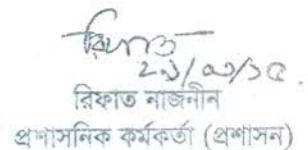 রিফাত
২১/০৩/১৫.
রিফাত নাজনীন
প্রশাসনিক কর্মকর্তা (প্রশাসন)